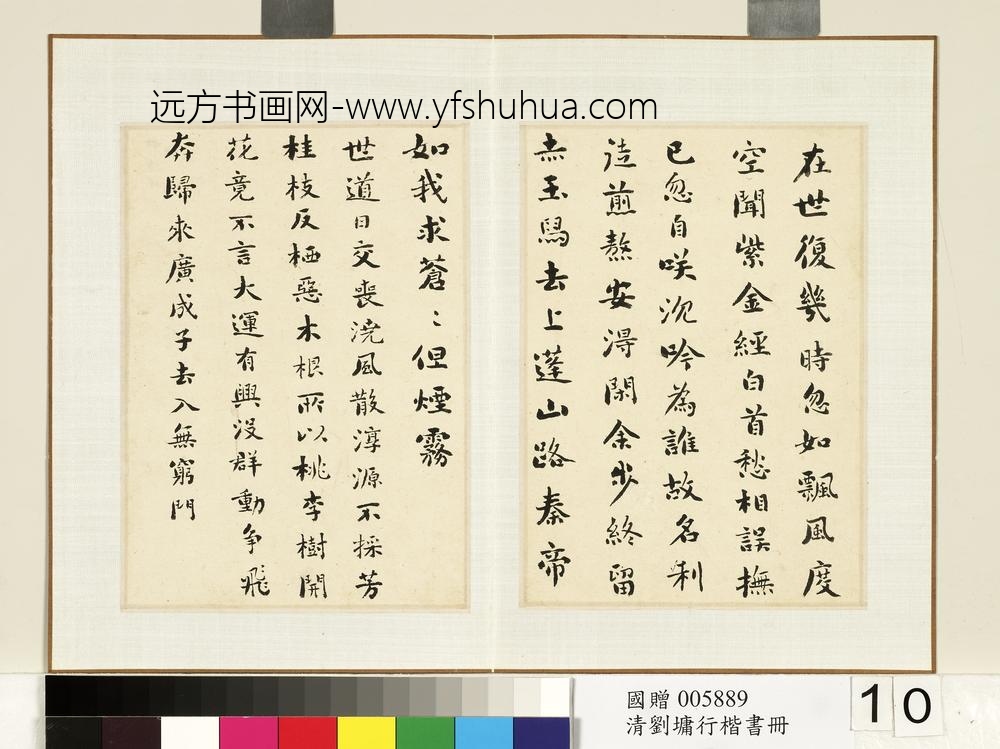 远方书画网-www.yfshuhua.com
在世復幾時忽如飄風度
空聞紫金經白首愁相誤撫
已忽自咲沉吟為誰故名利
徒煎熬安得閑余步終留
赤玉舄去上蓬山路秦帝
如我求蒼〻但煙霧
世道日交喪澆風散淳源不採芳
桂枝反栖惡木根所以桃李樹開
花竟不言大運有興没群動争飛
奔歸來廣成子去入無窮門
國贈 005889
清劉墉行楷書冊
10